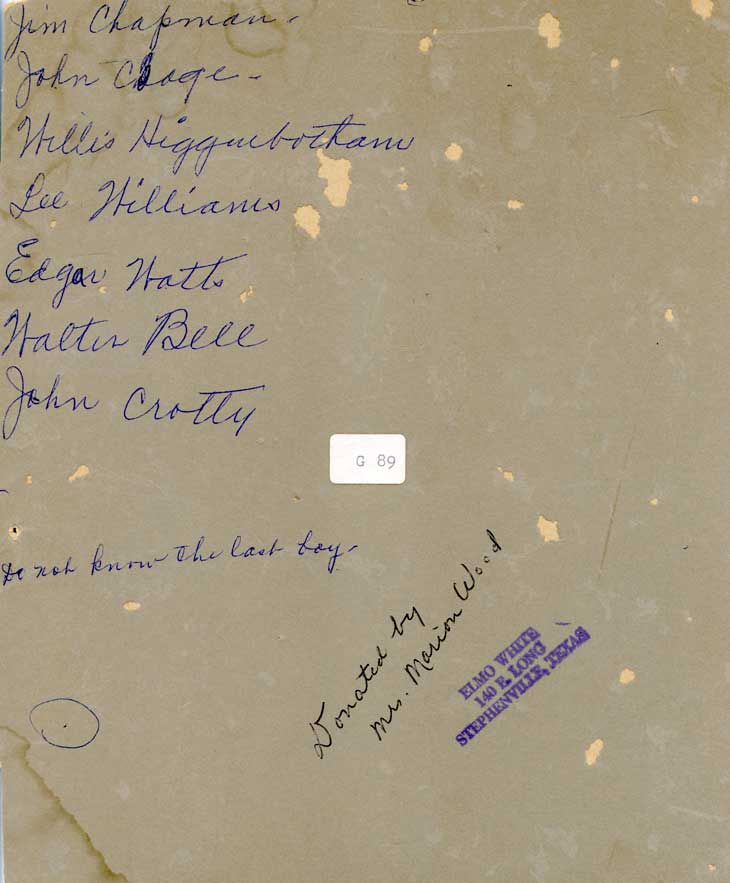 Jim Chapman -
John Cage -
Willis Higginbotham
Lee Williams
Edgar Watts
Walter Bell
John Crotty
G 89
Do not know the last boy -
Donated by
Mrs. Marion Wood
ELMO WHITE
140 E. LONG
STEPHENVILLE, TEXAS